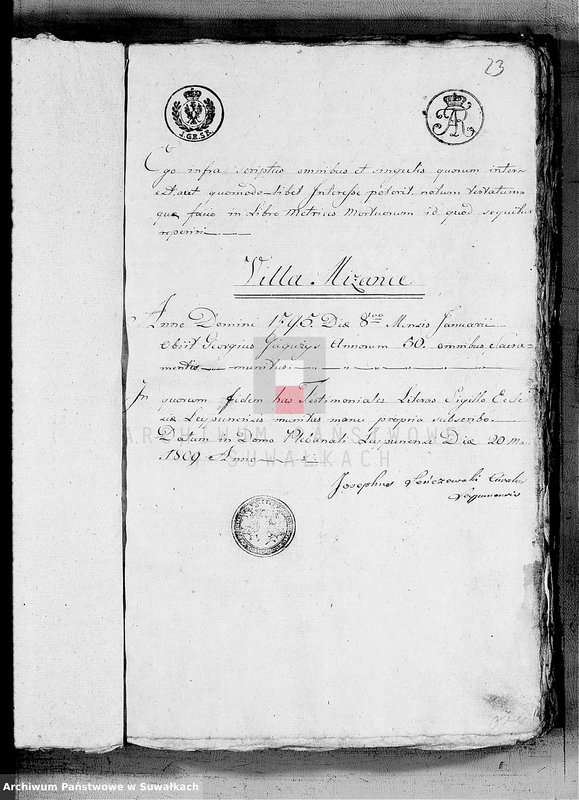 23
J.GR.SZ.
AR
Ego infra scriptus omnibus et singulis quorum inter-
est, aut quomodo-libet Interesse poterit notum testatum-
que facio in Libro Metrices Mortuorum id quod sequitur
reperiri.
Villa Mizańce
Anno Domini 1795. Die 8tva Mensis Januarii
obiit Georgius Annorum 50. omnibus Sacra-
mentis munitus.
In quorum fidem has Testimoniales Literas Sigillo Eccle
siæ munitus manu propria subscribo.
Datum in Domo Plebanali Die 20
1809 Anno
Josephus Curatus
ARCHIWUM PAŃSTWOWE
W SUWAŁKACH
Archiwum Państwowe w Suwałkach